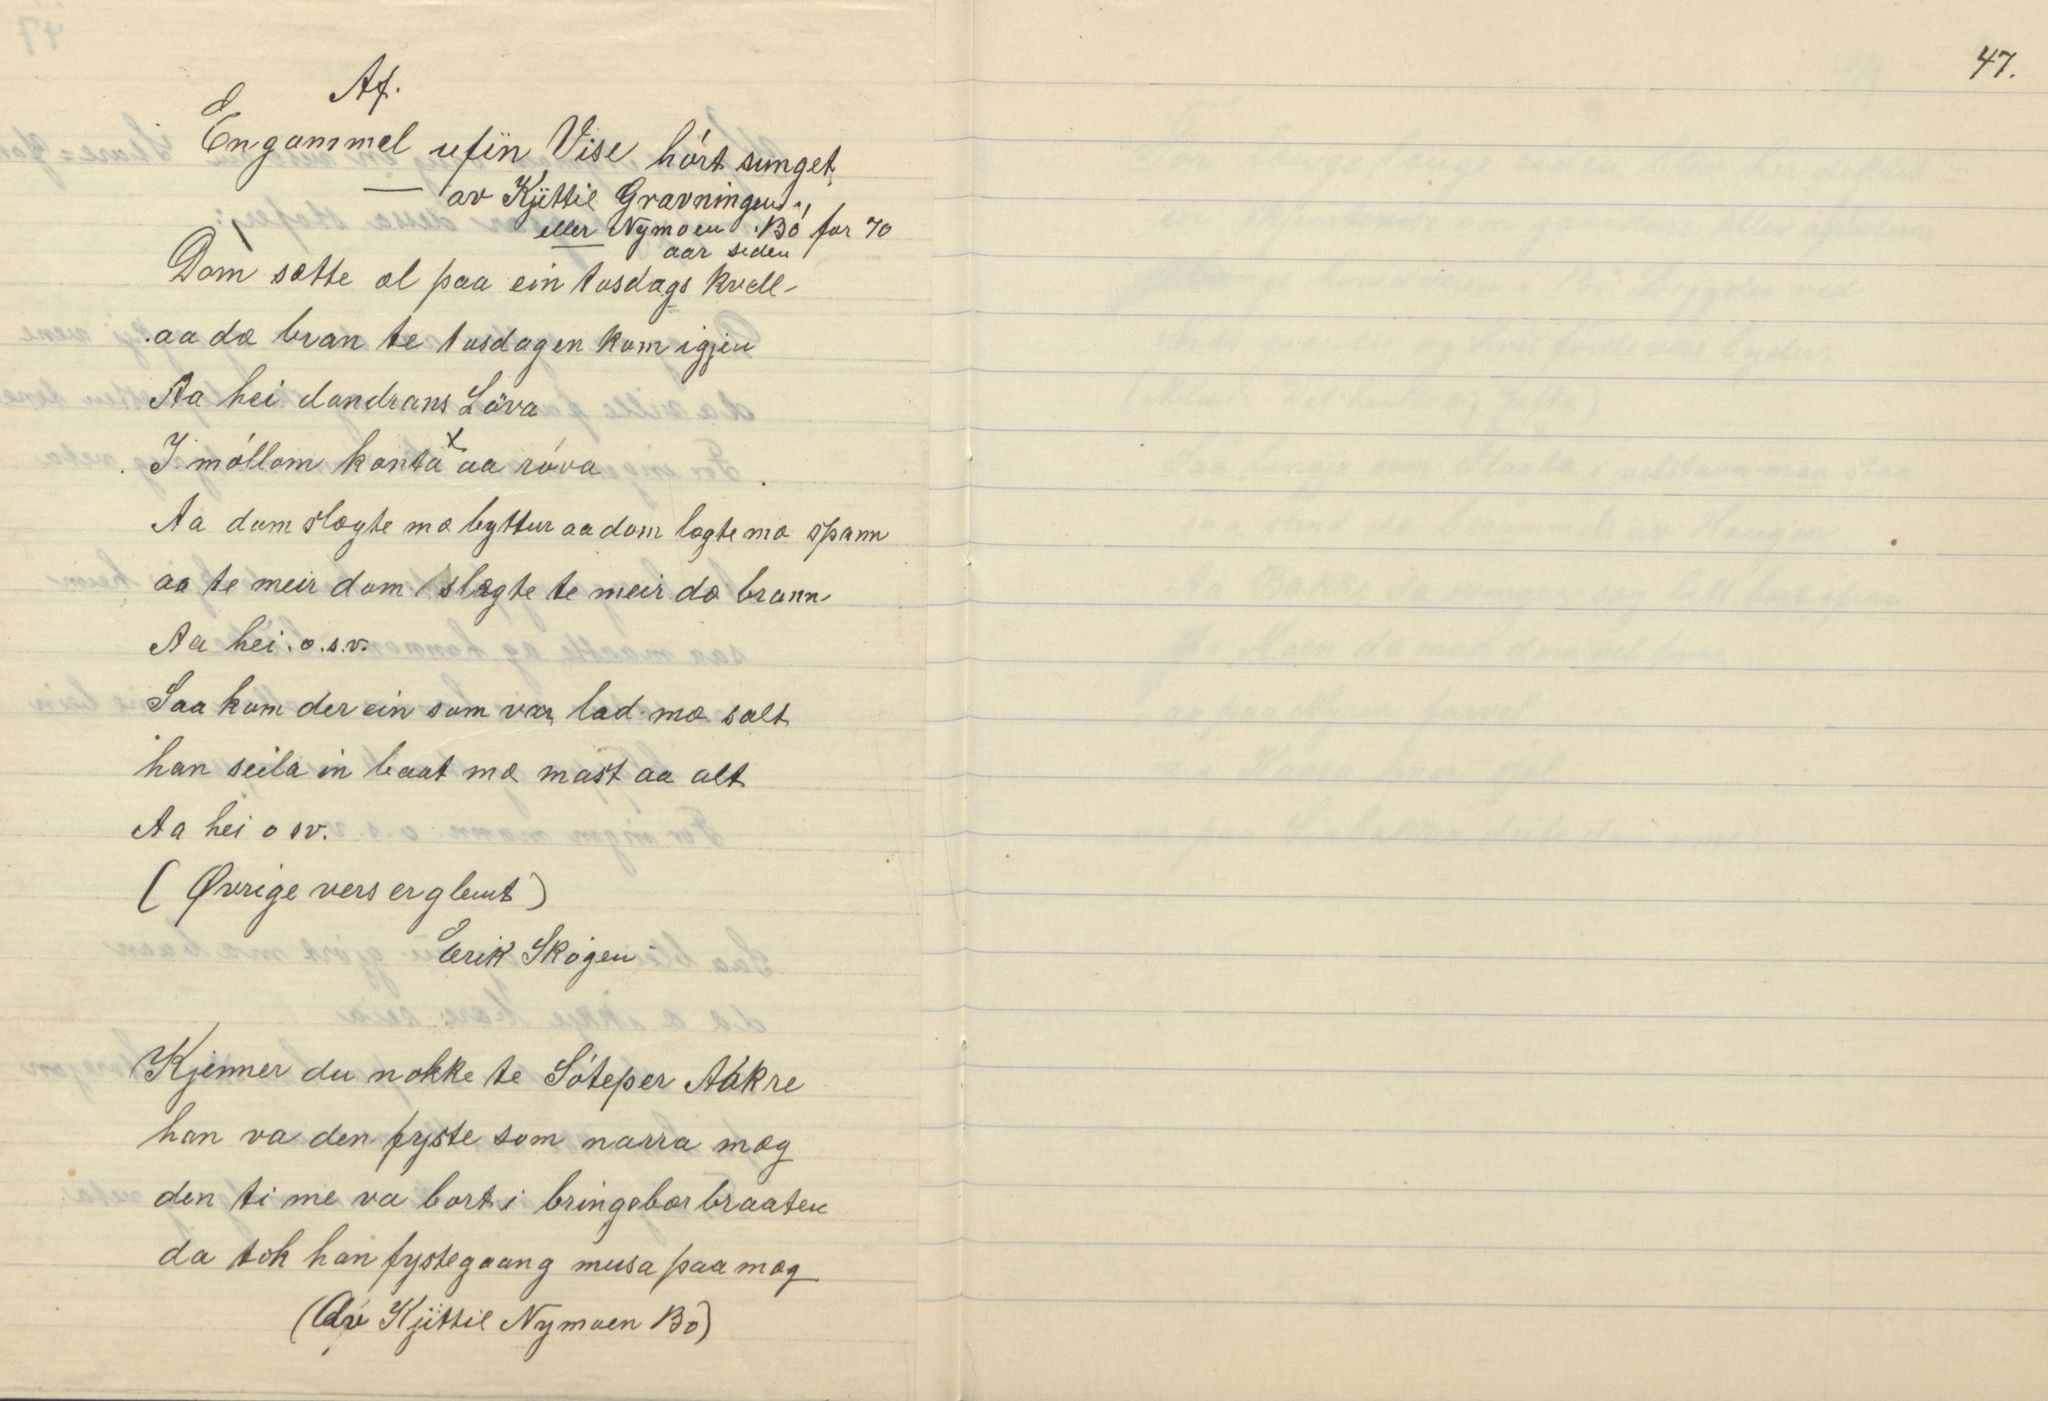 Af.
En gammel ufin Vise hórt sunget
av Kjittil Gravningen
eller Nymoen Bó for 70
aar siden
Dom sætte æl paa ein tosdags kvell
aa dæ bran te tosdagen kom igjen
Aa hei dandrans Löva
I móllom konta x aa róva
Aa dom slægte mæ byttur aa dom løgte mæ spann
aa te meir dom slægte te meir dæ brann
Aa hei. o.s.v.
Saa kom der ein som var lad mæ salt
han seila in baat mæ mast aa alt
Aa hei o sv.
( Øvrige vers er glemt )
Erik Skogen
Kjenner du nokke te Sóteper Aakre
han va den fyste som narra mæg
den ti me va bort i bringebær braaten
da tok han fystegaang musa paa mæg
(Av Kjittil Nymoen Bó)
47.